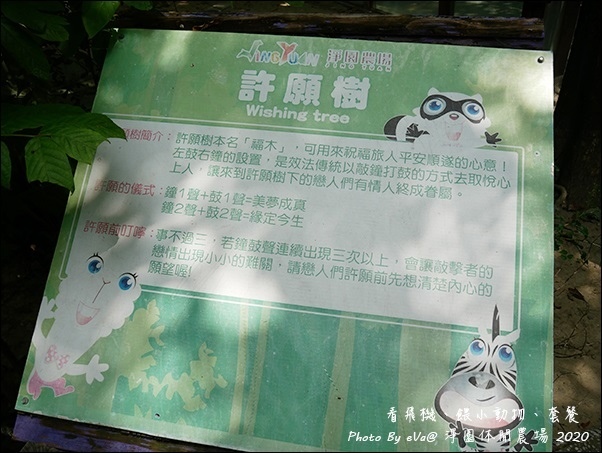 JINGYUAN 淨園農場
JING YUAN
許願樹
Wishing tree
願樹簡介：許願樹本名「福木」，可用來祝福旅人平安順遂的心意！
左鼓右鐘的設置，是效法傳統以敲鐘打鼓的方式去取悅心
上人，讓來到許願樹下的戀人們有情人終成眷屬。
許願的儀式：鐘1聲+鼓1聲=美夢成真
鐘2聲+鼓2聲=緣定今生
許願前叮嚀：事不過三，若鐘鼓聲連續出現三次以上，會讓敲擊者的
戀情出現小小的難關，請戀人們許願前先想清楚內心的
願望喔！
看飛機、餵小動物、套餐
Photo By eVa@ 淨園休閒農場 2020